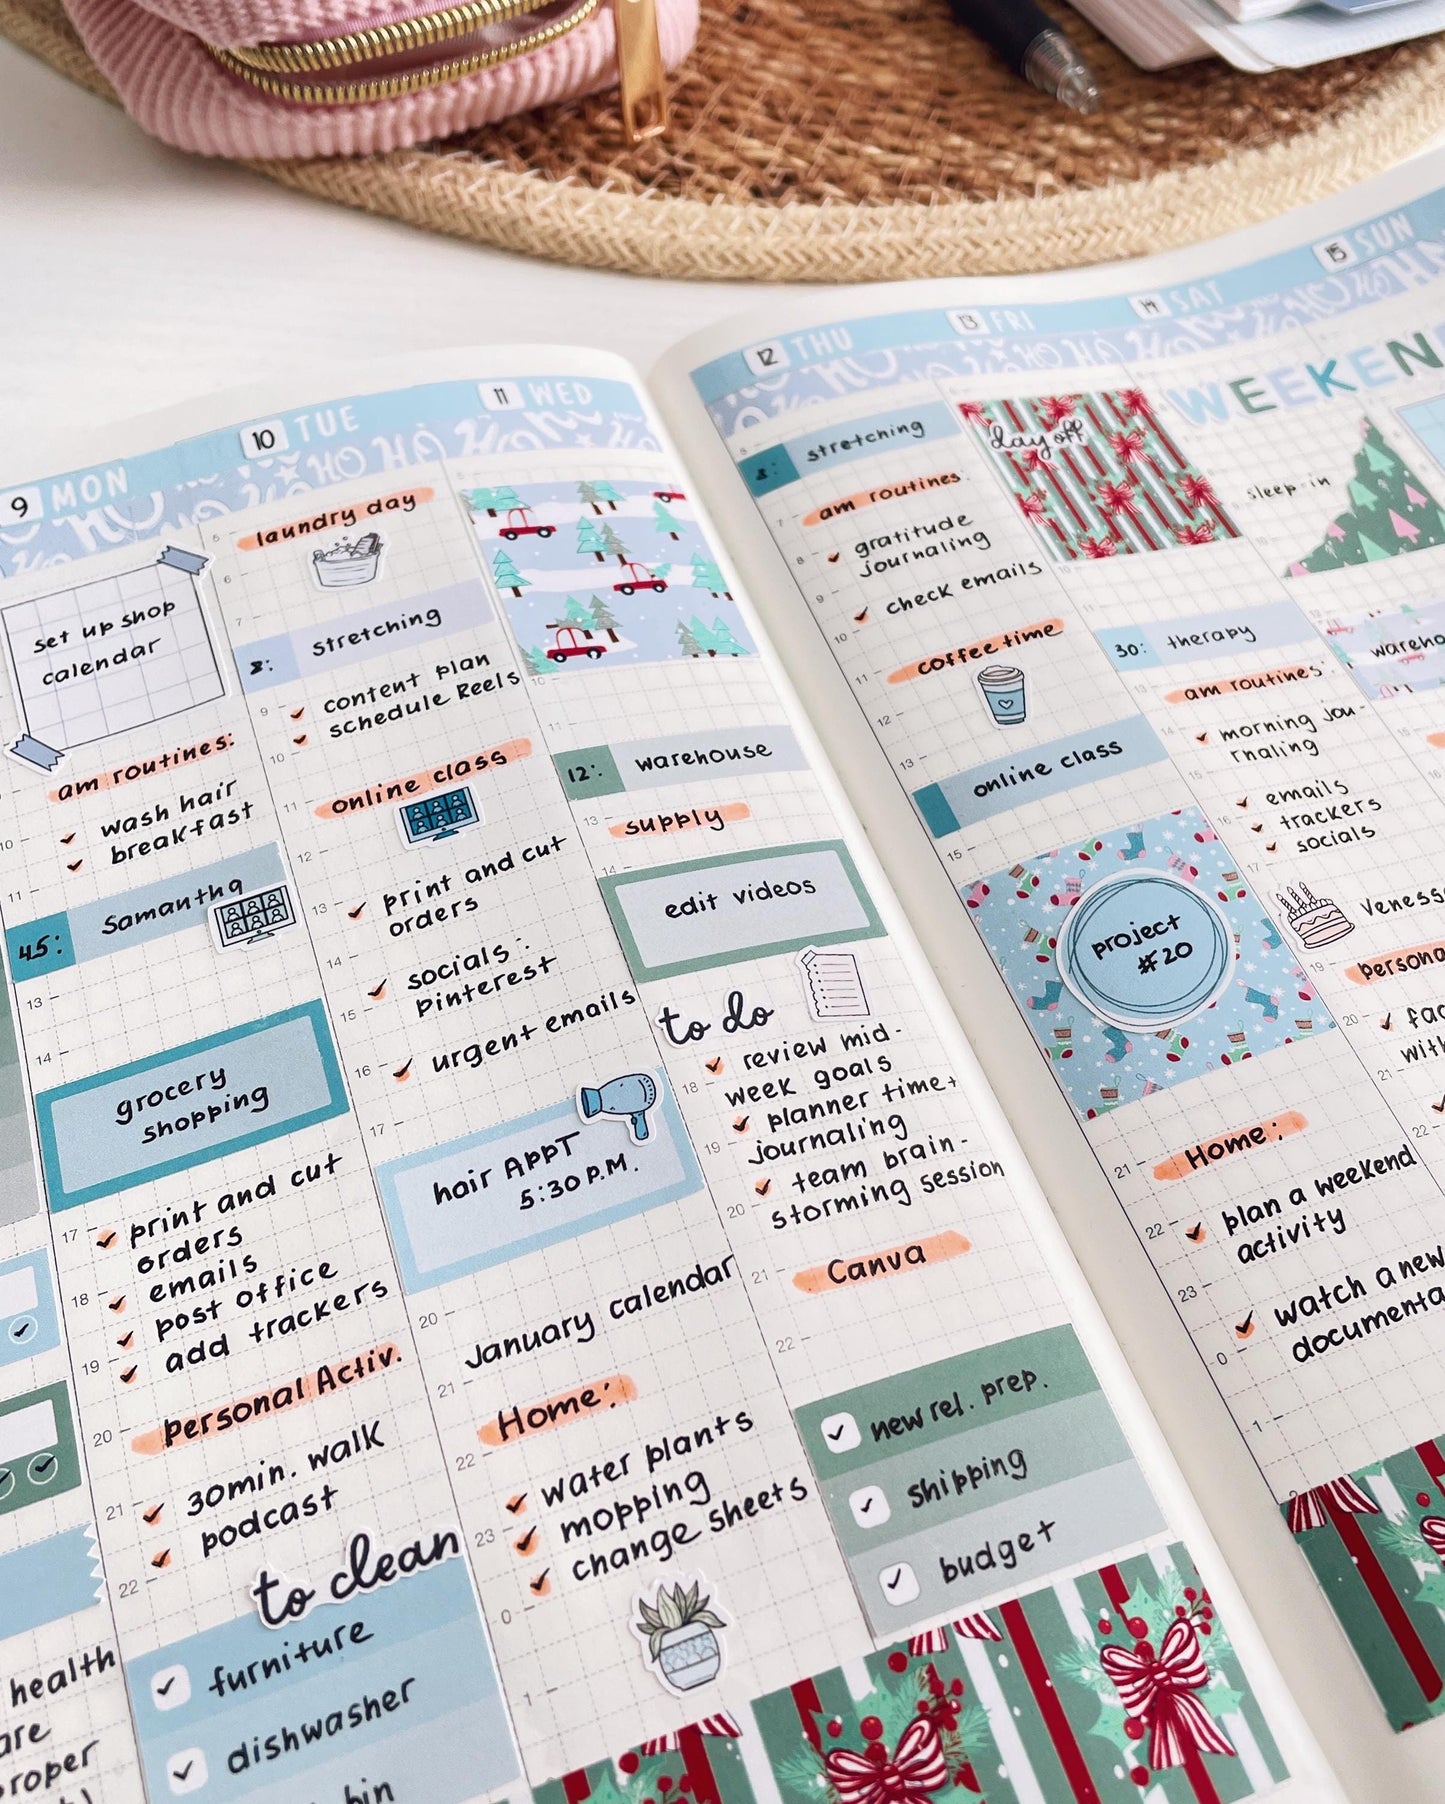 9 MON
set up shop
calendar
am routines:
wash hair
breakfast
45: Samantha
grocery
shopping
print and cut
orders
emails
post office
add trackers
personal Activ.
30min. walk
podcast
to clean
furniture
dishwasher
bin
health
10 TUE
laundry day
8: stretching
content plan
schedule Reels
online class
print and cut
orders
socials:
pinterest
urgent emails
hair APPT
5:30 P.M.
January calendar
Home:
water plants
mopping
change sheets
11 WED
12: warehouse
supply
edit videos
to do
review mid-
week goals
planner time+
journaling
team brain-
storming session
Canva
new rel. prep.
shipping
budget
12 THU
8: stretching
am routines:
gratitude
journaling
check emails
coffee time
online class
project
#20
Home:
plan a weekend
activity
watch a new
13 FRI
day off
30: therapy
am routines:
morning jou-
rnaling
emails
trackers
socials
14 SAT
15 SUN
WEEKEN
sleep-in